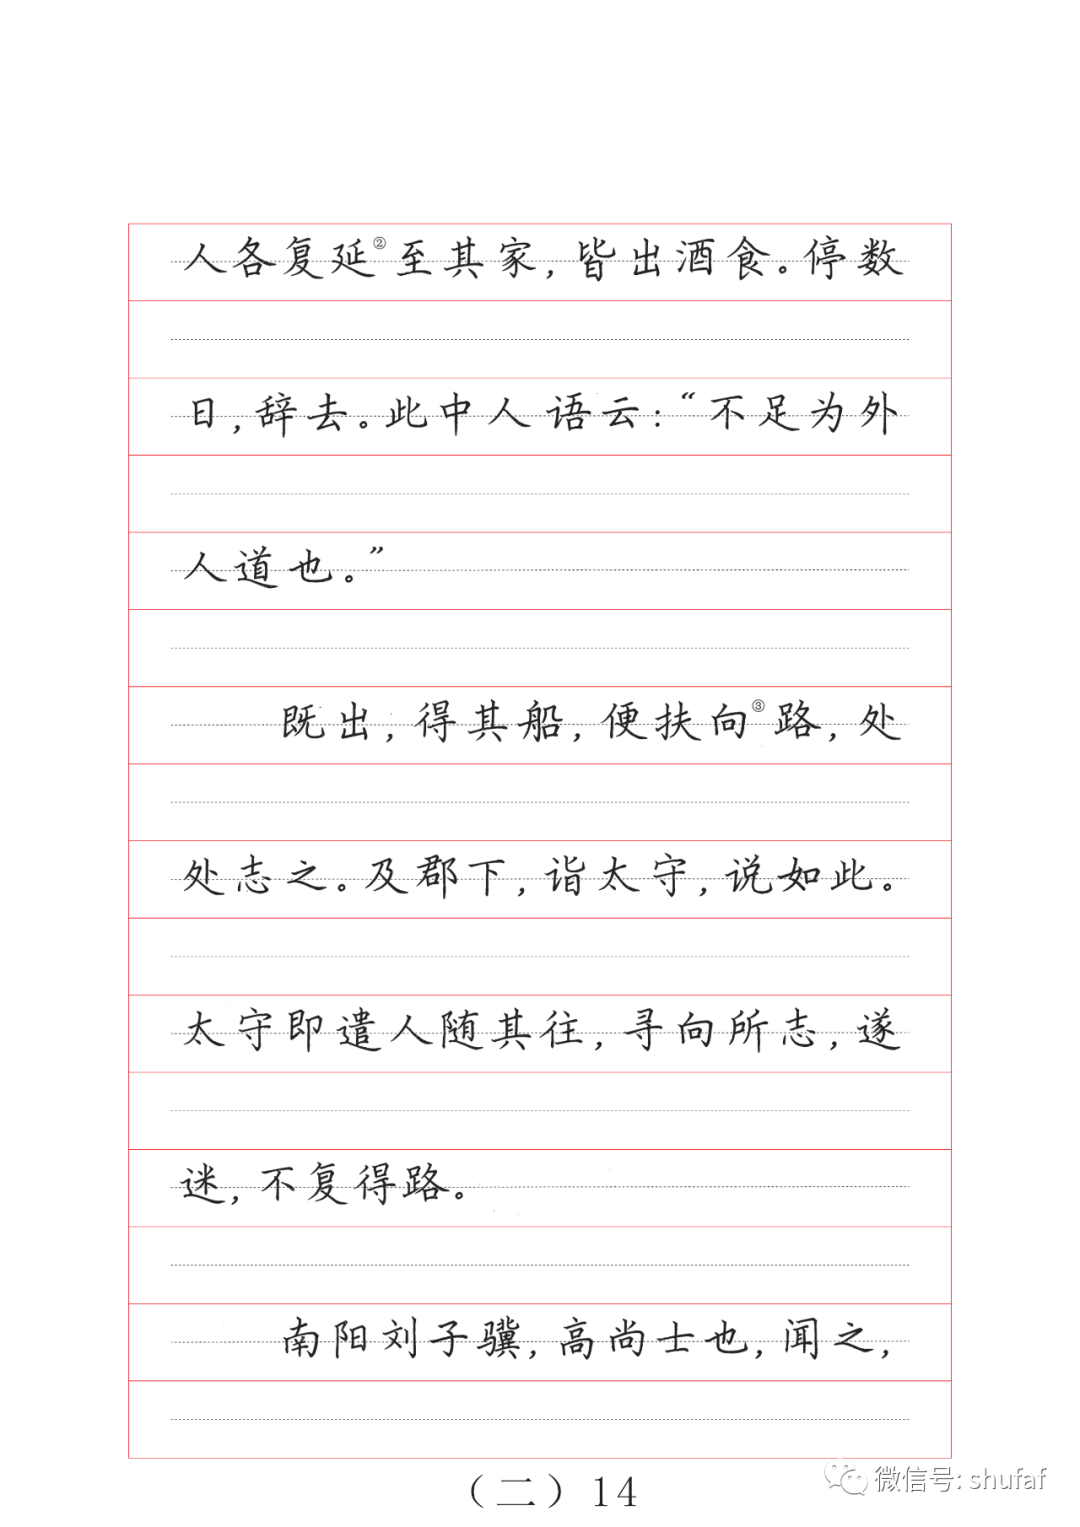 人各复延②至其家,皆出酒食。停数
日,辞去。此中人语云:“不足为外
人道也。”
既出,得其船,便扶向③路,处
处志之。及郡下,诣太守,说如此。
太守即遣人随其往,寻向所志,遂
迷,不复得路。
南阳刘子骥,高尚士也,闻之,
(二)14
微信号: shufaf